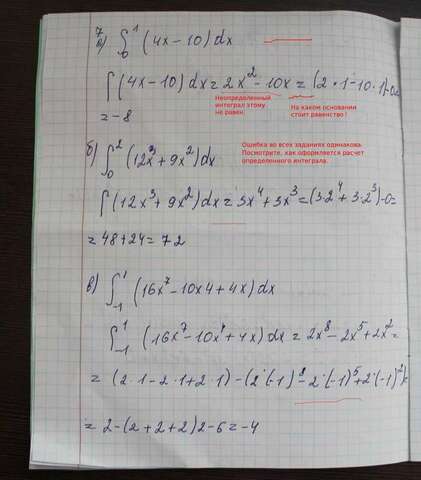 7
а) ∫₀¹ (4x – 10) dx
∫ (4x – 10) dx = 2x² – 10x = (2·1 – 10·1) – 0 =
Неопределенный интеграл этому не равен.
На каком основании стоит равенство!
= – 8
б) ∫₀² (12x³ + 9x²) dx
Ошибка во всех заданиях одинакова.
Посмотрите, как оформляется расчет определенного интеграла.
∫ (12x³ + 9x²) dx = 3x⁴ + 3x³ = (3·2⁴ + 3·2³) – 0 =
= 48 + 24 = 72
в) ∫₋₁¹ (16x⁷ – 10x4 + 4x) dx
∫₋₁¹ (16x⁷ – 10x⁴ + 4x) dx = 2x⁸ – 2x⁵ + 2x² =
= (2·1 – 2·1 + 2·1) – (2·(-1)⁸ – 2·(-1)⁵ + 2·(-1)²) =
= 2 – (2 + 2 + 2) 2 – 6 = – 4